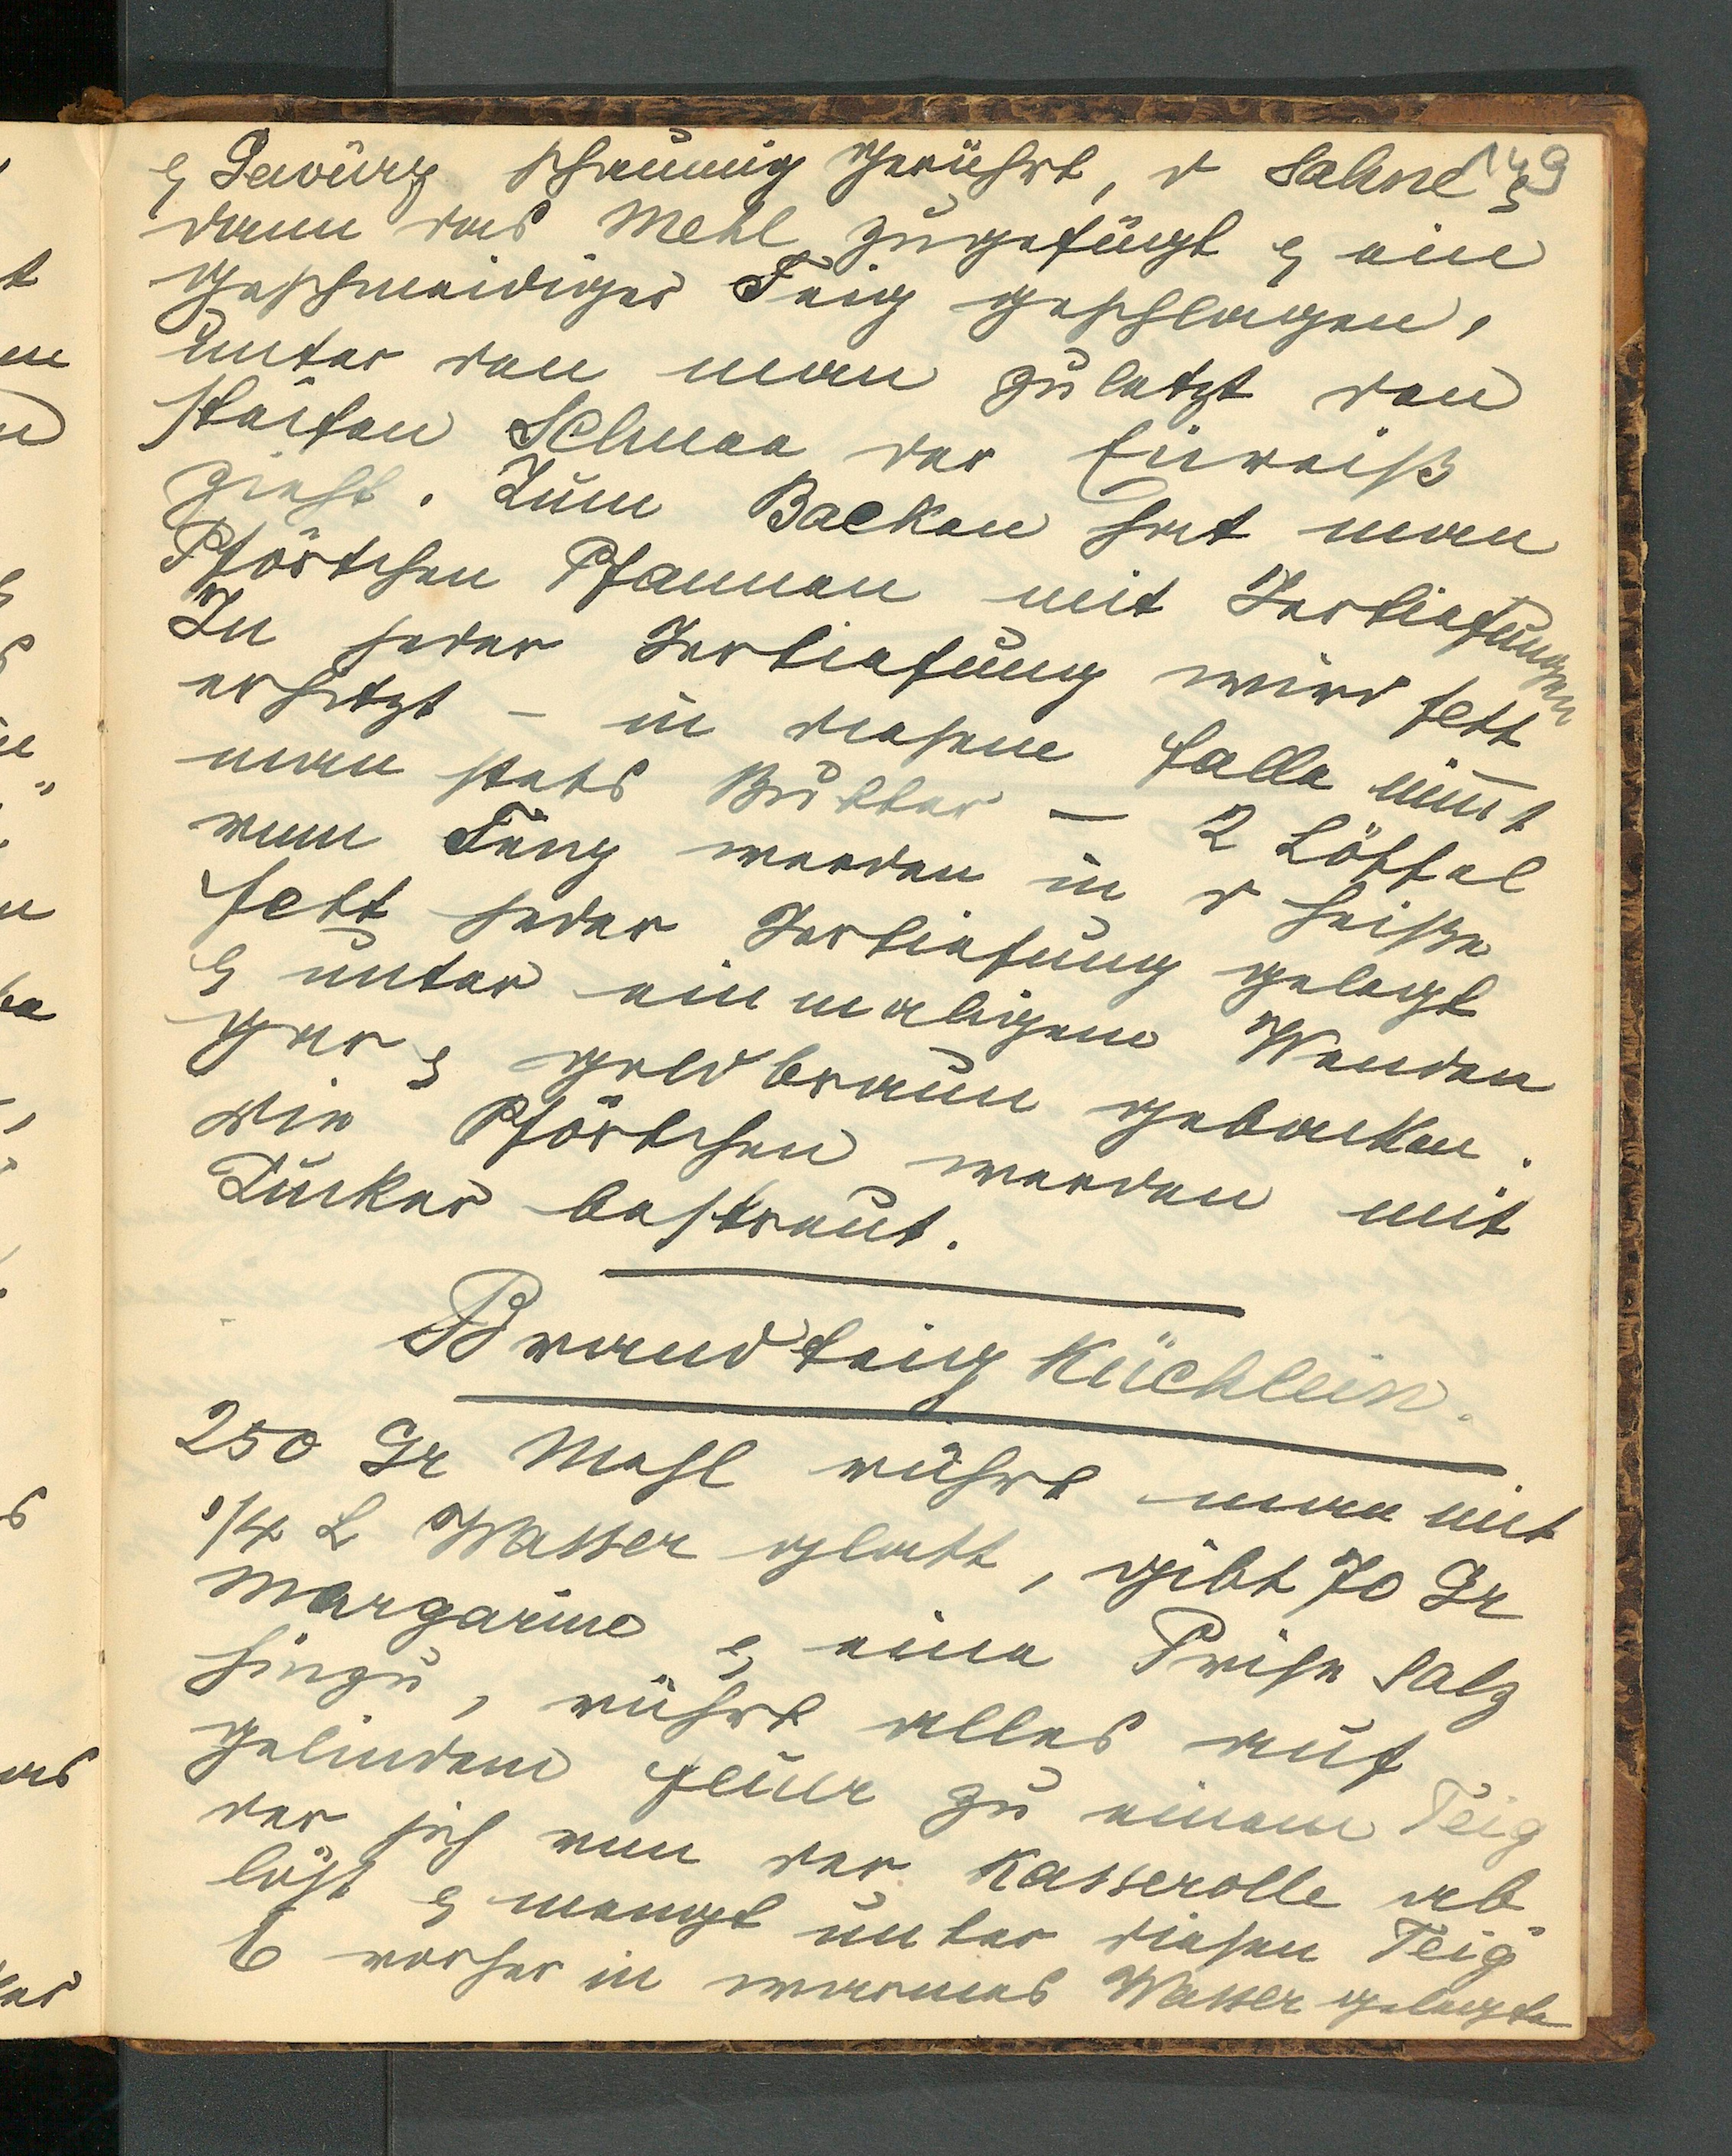 149
& Gewürz schaumig gerührt, d Sahne &
dann das Mehl zugefügt & ein
geschmeidiger Teig geschlagen,
unter den man zuletzt den
steifen Schnee der Eiweiß
zieht. Zum Backen hat man
Pförtchen Pfannen mit Vertiefungen
In jeder Vertiefung wird Fett
erhitzt – in diesem Falle nim̄t
man stets Butter – 2 Löffel
vom Teig werden in d heiße
Fett jeder Vertiefung gelegt
& unter einmaligem Wenden
gar & goldbraun gebacken.
Die Pförtchen werden mit
Zucker bestreut.
Brandteig Küchlein.
250 Gr Mehl rührt man mit
1/4 L Wasser glatt, gibt 70 Gr
Margarine & eine Prise Salz
hinzu, rührt alles auf
gelindem Feuer zu einem Teig
der sich von der Kasserolle ab
löst & mengt unter diesen Teig
6 vorher in warmes Wasser gelegte